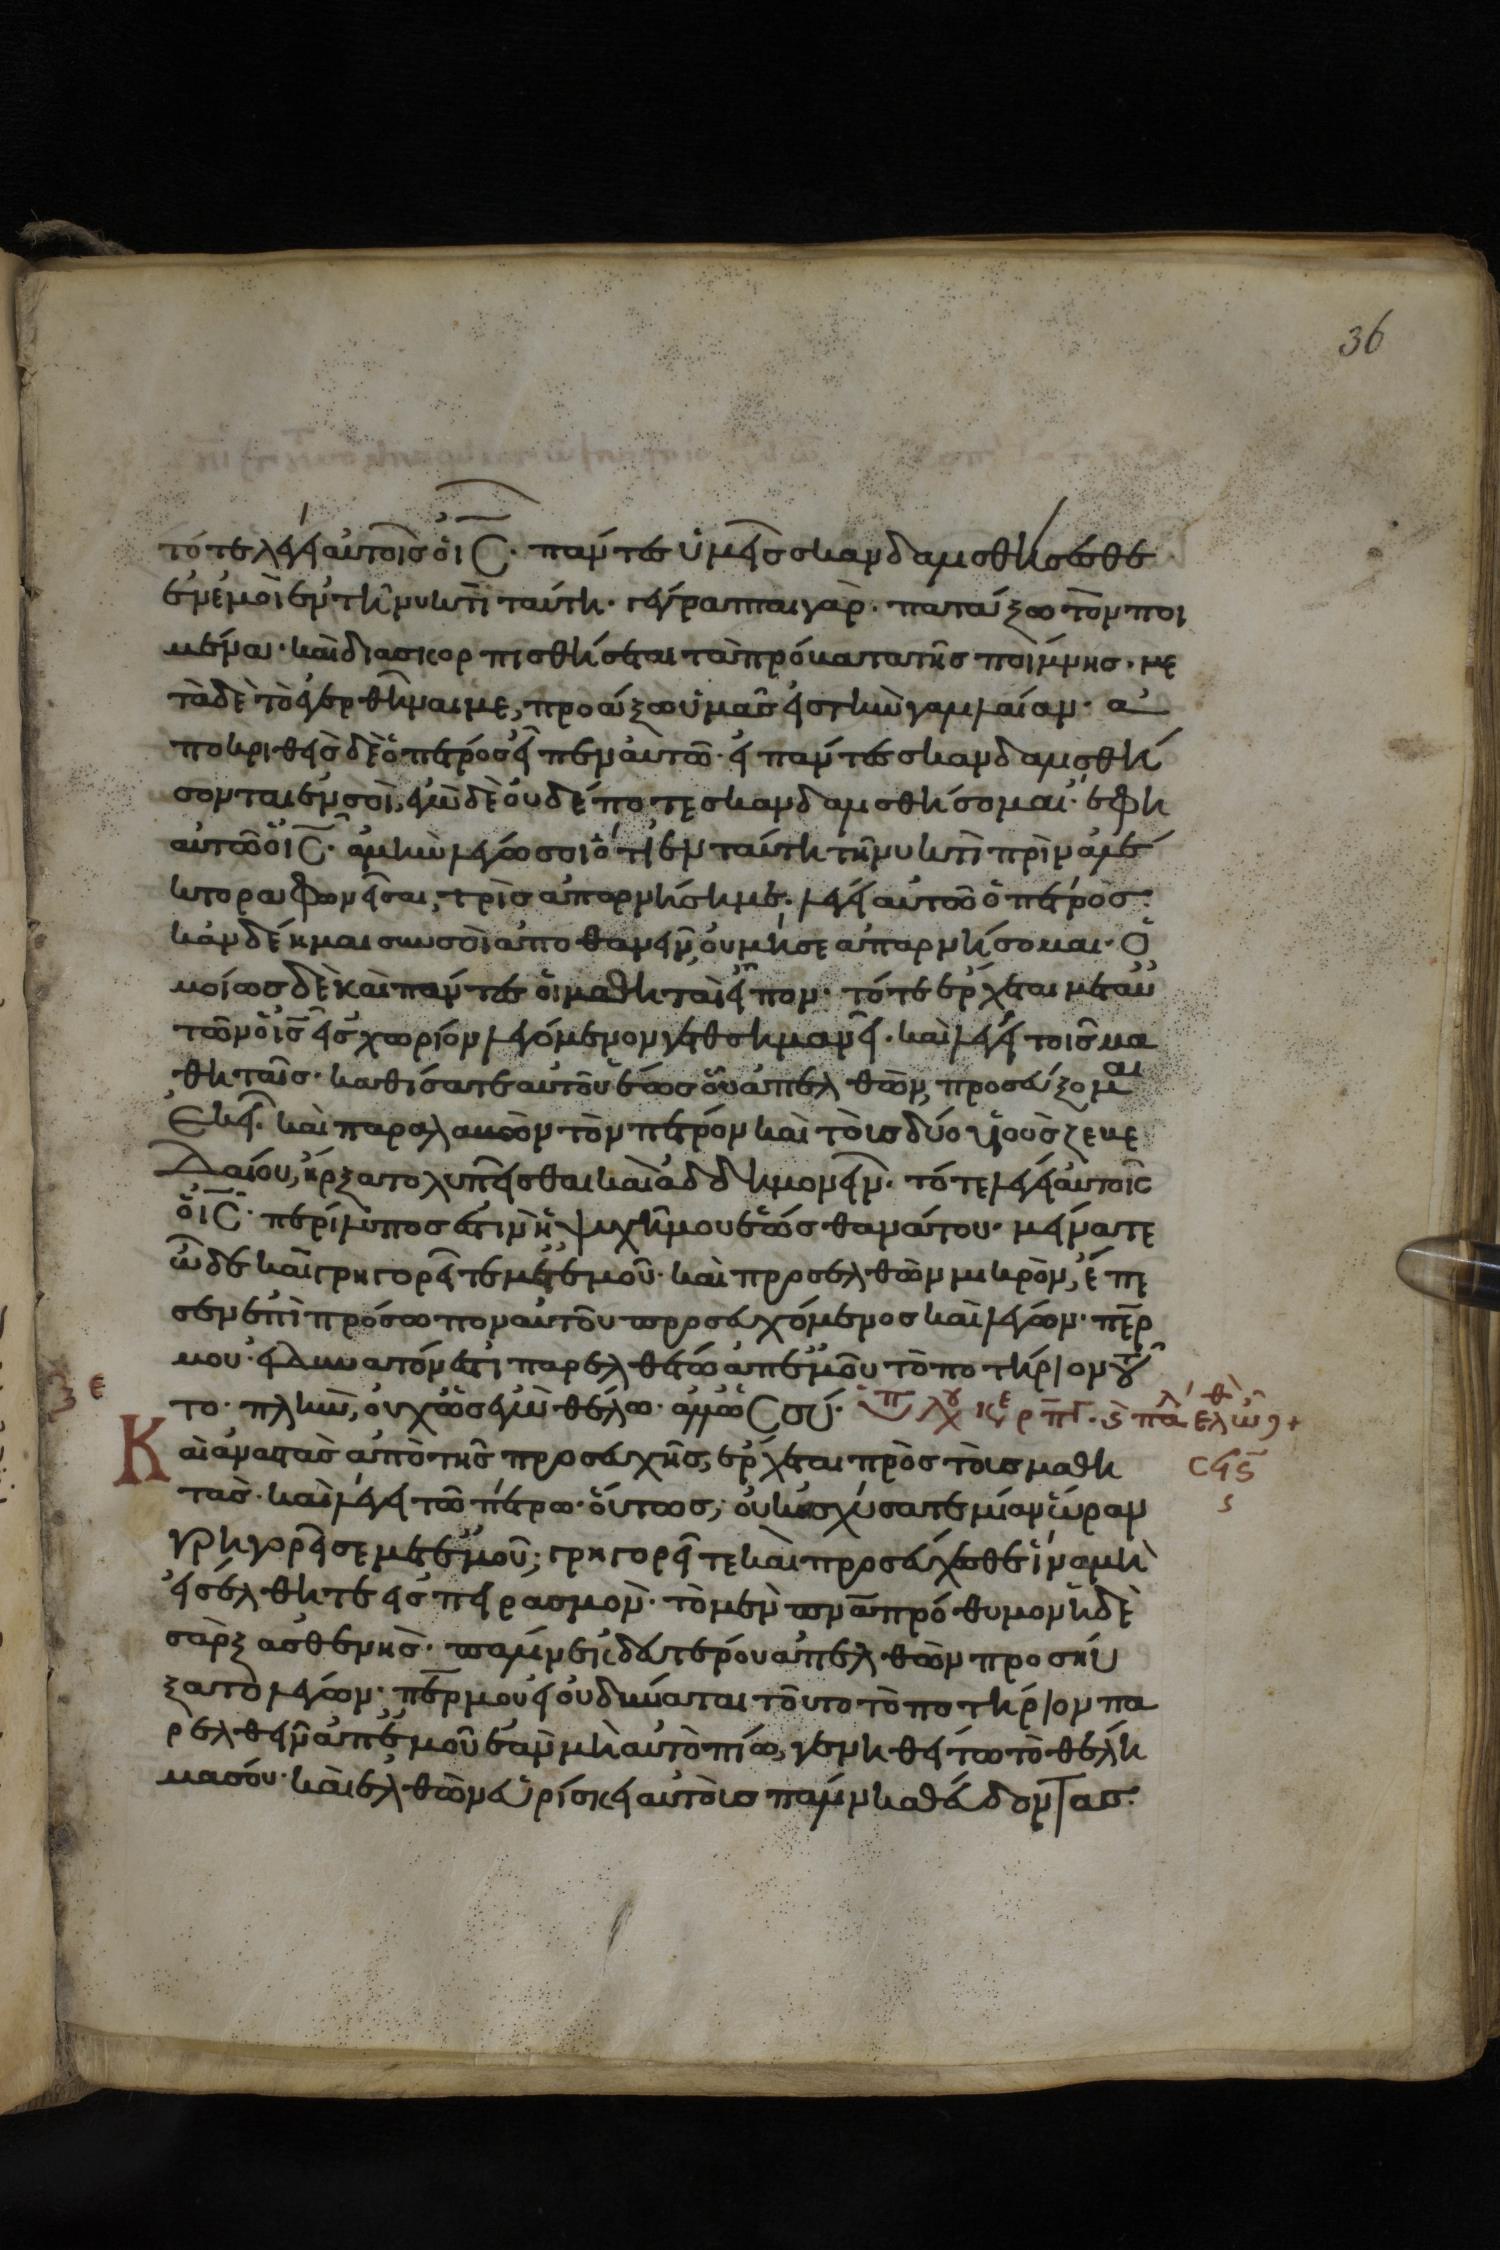 36
τότε λέγει αὐτοῖς ὁ ις· πάντες ὑμεῖς σκανδαλισθήσεσθε
ἐν ἐμοὶ ἐν τῇ νυκτὶ ταύτῃ· γέγραπται γάρ· πατάξω τὸν ποι
μένα· καὶ διασκορπισθήσεται τὰ πρόβατα τῆς ποίμνης· με
τὰ δὲ τὸ ἐγερθῆναι με, προάξω ὑμᾶς εἰς τὴν γαλιλαίαν· ἀ
ποκριθεὶς δὲ ὁ πέτρος εἶπεν αὐτῶ· εἰ πάντες σκανδαλισθή
σονται ἐν σοὶ, ἐγὼ δὲ οὐδέποτε σκανδαλισθήσομαι· ἔφη
αὐτῶ ὁ ις· ἀμὴν λέγω σοι ὅτι ἐν ταύτη τῆ νυκτὶ πρὶν ἀλέ
κτορα φωνῆσαι, τρὶς ἀπαρνήση με· λέγει αὐτῶ ὁ πέτρος·
κἂν δέη με σὺν σοὶ ἀποθανεῖν, οὐ μή σε ἀπαρνήσομαι· ὁ
μοίως δὲ καὶ πάντες οἱ μαθηταὶ εἶπον· τότε ἔρχεται μετ αὐ
τῶν ὁ ις εἰς χωρίον λεγόμενον γεθσημανεῖ· καὶ λέγει τοῖς μα
θηταῖς· καθίσατε αὐτοῦ ἕως οὗ ἀπελθὼν, προσεύξομαι
ἐκεῖ· καὶ παραλαβὼν τὸν πέτρον καὶ τοὺς δύο υἱοὺς ζεβε
δαίου, ἤρξατο λυπεῖσθαι καὶ ἀδδημονεῖν· τότε λέγει αὐτοῖς
ὁ ις· περίλυπος ἐστιν ἡ ψυχή μου ἕως θανάτου· μείνατε
ὧδε καὶ γρηγορεῖτε μετ ἐμοῦ· καὶ προσελθὼν μικρὸν, ἔπε
σεν ἐπὶ πρόσωπον αὐτοῦ προσευχόμενος καὶ λέγων· περ
μου· εἰ δυνατόν ἐστι παρελθέτω ἀπ ἐμοῦ τὸ ποτήριον τοῦ
το· πλὴν, οὐχ ὡς ἐγὼ θέλω· ἀλλ ὡς σύ·
Καὶ ἀναστὰς ἀπὸ τῆς προσευχῆς, ἔρχεται πρὸς τοὺς μαθη
τὰς· καὶ λέγει τῶ πέτρω· οὕτως, οὐκ ἰσχύσατε μίαν ὥραν
γρηγορῆσαι μετ ἐμοῦ; γρηγορεῖτε καὶ προσεύχεσθε ἵνα μὴ
εἰσέλθητε εἰς πειρασμὸν· τὸ μὲν πνα πρόθυμον ἡ δὲ
σὰρξ ἀσθενὴς· πάλιν ἐκ δευτέρου ἀπελθὼν προσηύ
ξατο λέγων· περ μου εἰ οὐ δύναται τοῦτο τὸ ποτήριον πα
ρελθεῖν ἀπ ἐμοῦ ἐὰν μὴ αὐτὸ πίω, γενηθείτω τὸ θέλη
μα σου· καὶ ἐλθὼν εὑρίσκει αὐτοὺς πάλιν καθεύδοντας·